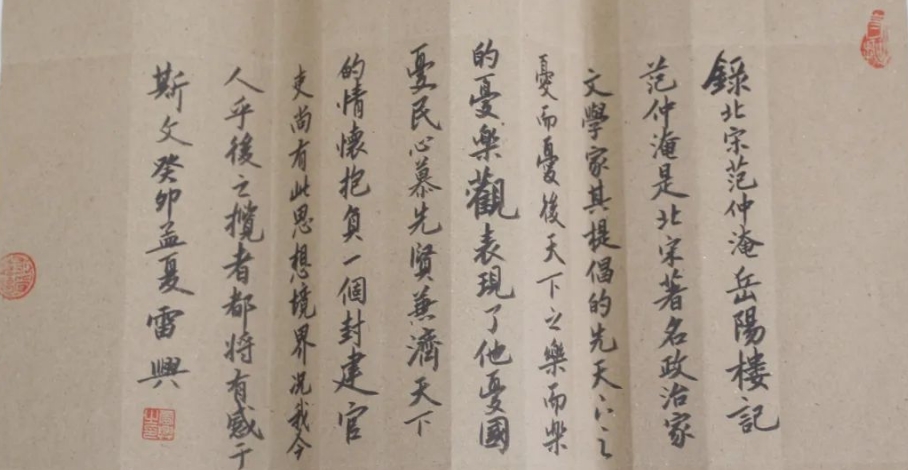 錄北宋范仲淹岳陽樓記
范仲淹是北宋著名政治家
文學家其提倡的先天下之
憂而憂後天下之樂而樂
的憂樂觀表現了他憂國
憂民心慕先賢兼濟天下
的情懷抱負一個封建官
吏尚有此思想境界况我今
人乎後之攬者都將有感于
斯文癸卯孟夏雷興